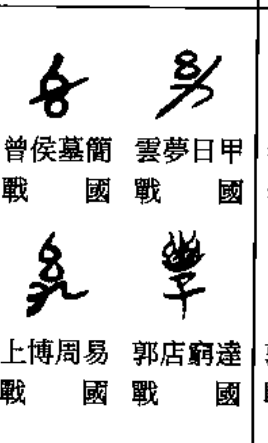 曾侯墓簡 雲夢日甲
戰國 戰國
上博周易 郭店窮達
戰國 戰國